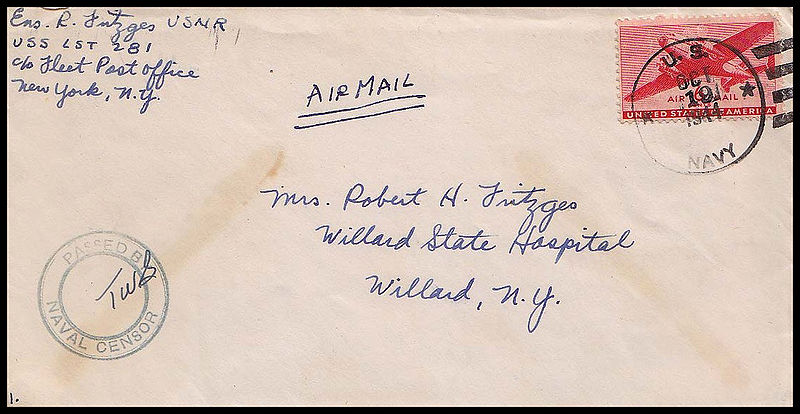 Ens. R. Fritzges USNR
USS LST 281
c/o Fleet Post office
New York, N.Y.
AIR MAIL
U.S.
OCT
19
1944
NAVY
AIR MAIL
UNITED STATES OF AMERICA
Mrs. Robert H. Fritzges
Willard State Hospital
Willard, N.Y.
PASSED BY
NAVAL CENSOR
1.